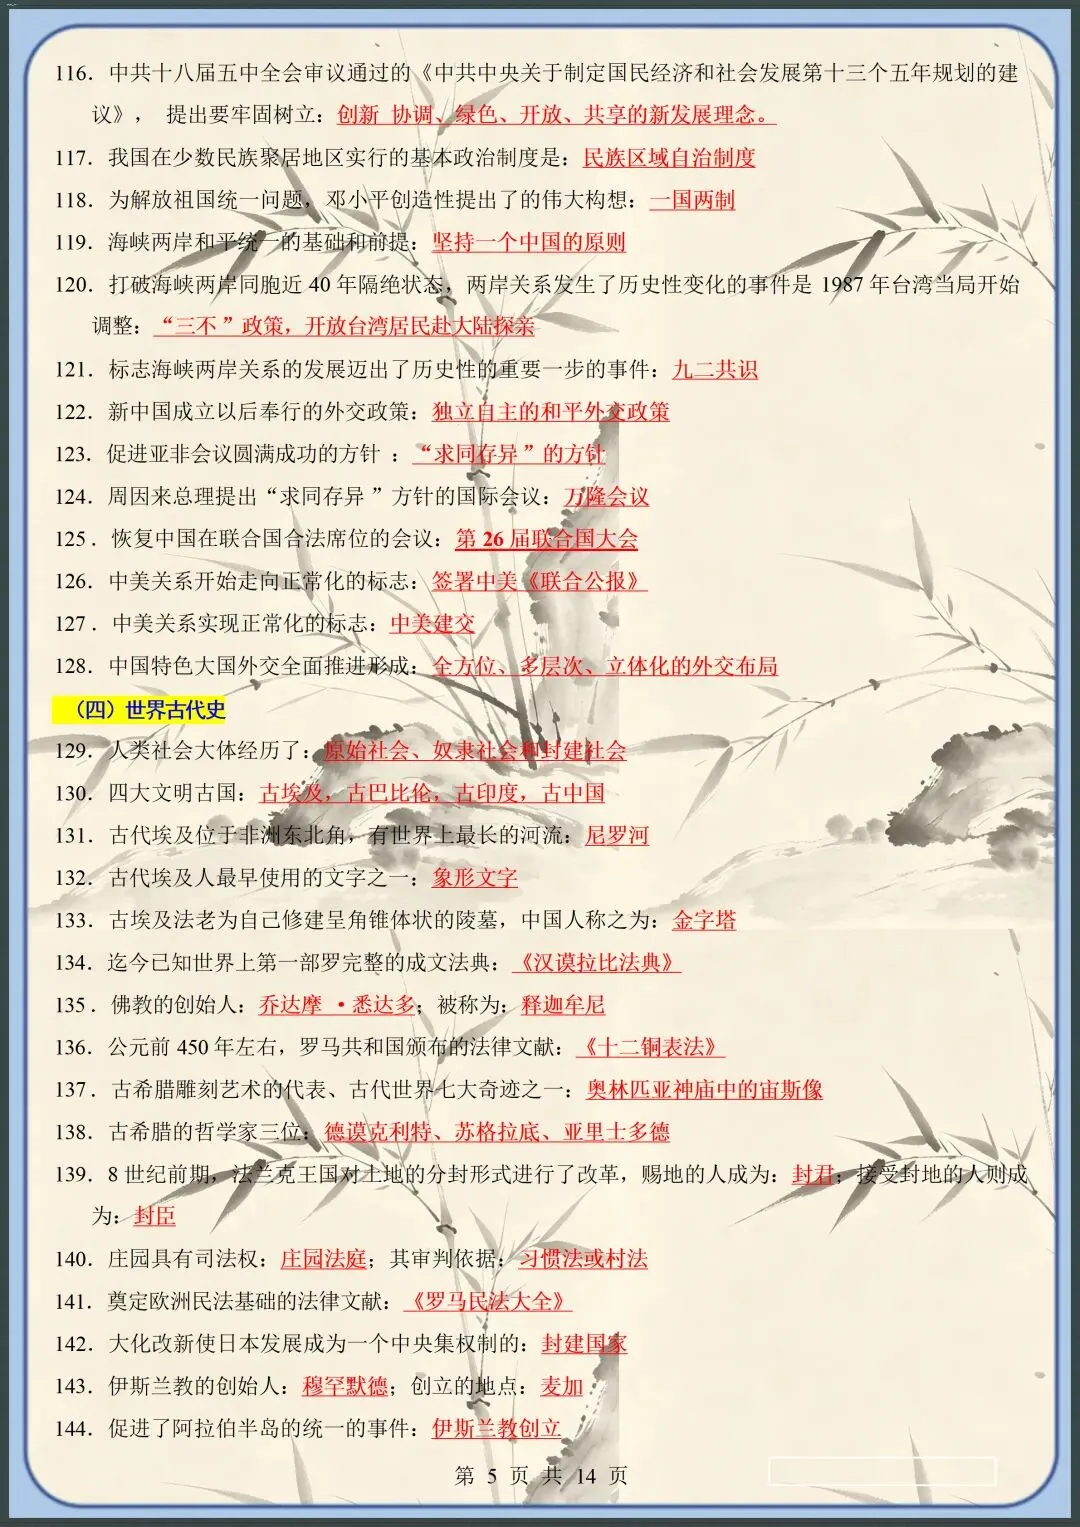 116．中共十八届五中全会审议通过的《中共中央关于制定国民经济和社会发展第十三个五年规划的建
议》， 提出要牢固树立：创新 协调、绿色、开放、共享的新发展理念。
117．我国在少数民族聚居地区实行的基本政治制度是：民族区域自治制度
118．为解放祖国统一问题，邓小平创造性提出了的伟大构想：一国两制
119．海峡两岸和平统一的基础和前提：坚持一个中国的原则
120．打破海峡两岸同胞近 40 年隔绝状态，两岸关系发生了历史性变化的事件是 1987 年台湾当局开始
调整：“三不 ”政策，开放台湾居民赴大陆探亲
121．标志海峡两岸关系的发展迈出了历史性的重要一步的事件：九二共识
122．新中国成立以后奉行的外交政策：独立自主的和平外交政策
123．促进亚非会议圆满成功的方针 ：“求同存异 ”的方针
124．周因来总理提出“求同存异 ”方针的国际会议：万隆会议
125．恢复中国在联合国合法席位的会议：第 26 届联合国大会
126．中美关系开始走向正常化的标志：签署中美《联合公报》
127．中美关系实现正常化的标志：中美建交
128．中国特色大国外交全面推进形成：全方位、多层次、立体化的外交布局
（四）世界古代史
129．人类社会大体经历了：原始社会、奴隶社会和封建社会
130．四大文明古国：古埃及，古巴比伦，古印度，古中国
131．古代埃及位于非洲东北角，有世界上最长的河流：尼罗河
132．古代埃及人最早使用的文字之一：象形文字
133．古埃及法老为自己修建呈角锥体状的陵墓，中国人称之为：金字塔
134．迄今已知世界上第一部罗完整的成文法典：《汉谟拉比法典》
135．佛教的创始人：乔达摩 ·悉达多；被称为：释迦牟尼
136．公元前 450 年左右，罗马共和国颁布的法律文献：《十二铜表法》
137．古希腊雕刻艺术的代表、古代世界七大奇迹之一：奥林匹亚神庙中的宙斯像
138．古希腊的哲学家三位：德谟克利特、苏格拉底、亚里士多德
139．8 世纪前期，法兰克王国对土地的分封形式进行了改革，赐地的人成为：封君；接受封地的人则成
为：封臣
140．庄园具有司法权：庄园法庭；其审判依据：习惯法或村法
141．奠定欧洲民法基础的法律文献：《罗马民法大全》
142．大化改新使日本发展成为一个中央集权制的：封建国家
143．伊斯兰教的创始人：穆罕默德；创立的地点：麦加
144．促进了阿拉伯半岛的统一的事件：伊斯兰教创立
第 5 页 共 14 页